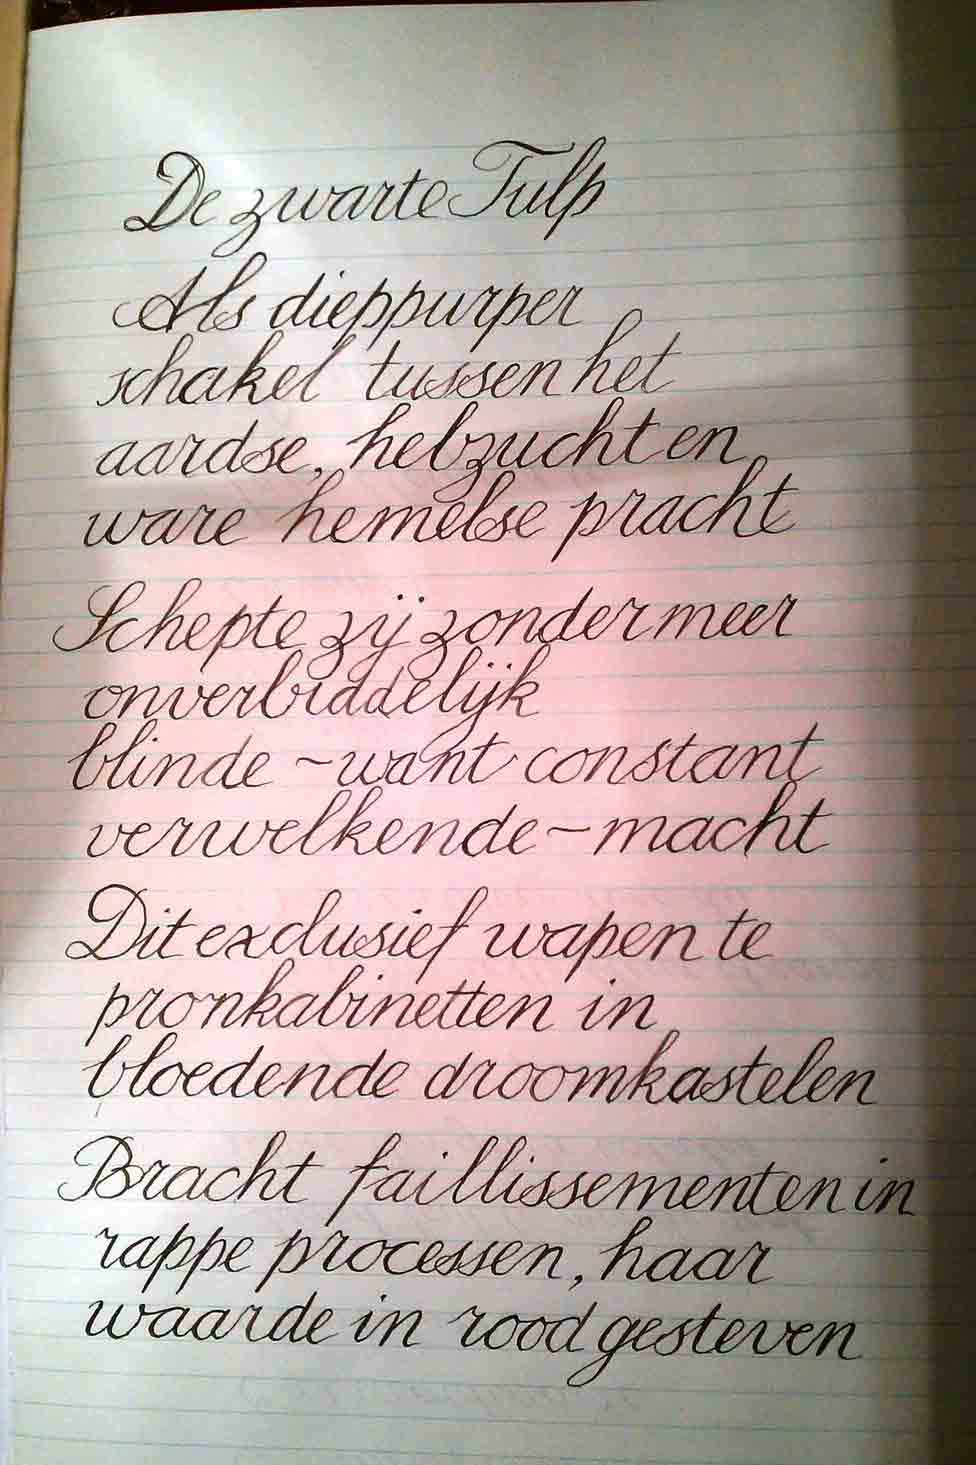 De zwarte Tulp
Als dieppurper
schakel tussen het
aardse, hebzucht en
ware hemelse pracht
Schepte zij zonder meer
onverbiddelijk
blinde ~ want constant
verwelkende ~ macht
Dit exclusief wapen te
pronkabinetten in
bloedende droomkastelen
Bracht faillissementen in
rappe processen, haar
waarde in rood gesteven